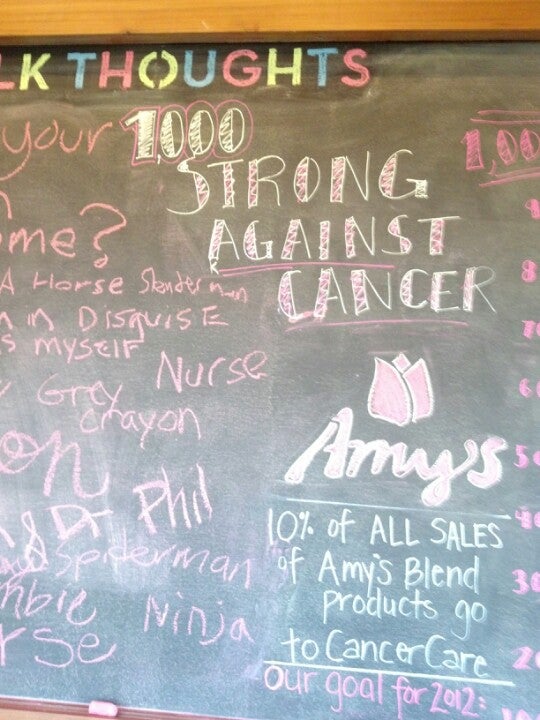 LK THOUGHTS
your
ome?
A HORSE Slenderman
in DISGUISE
MYSELF
Nurse
GREY
crayon
on
& Dr Phil
Spiderman
mbie Ninja
rse
1,000
STRONG
AGAINST
CANCER
Amy's
10% of ALL SALES
of Amy's Blend
products go
to CancerCare
Our goal for 2012:
1,00